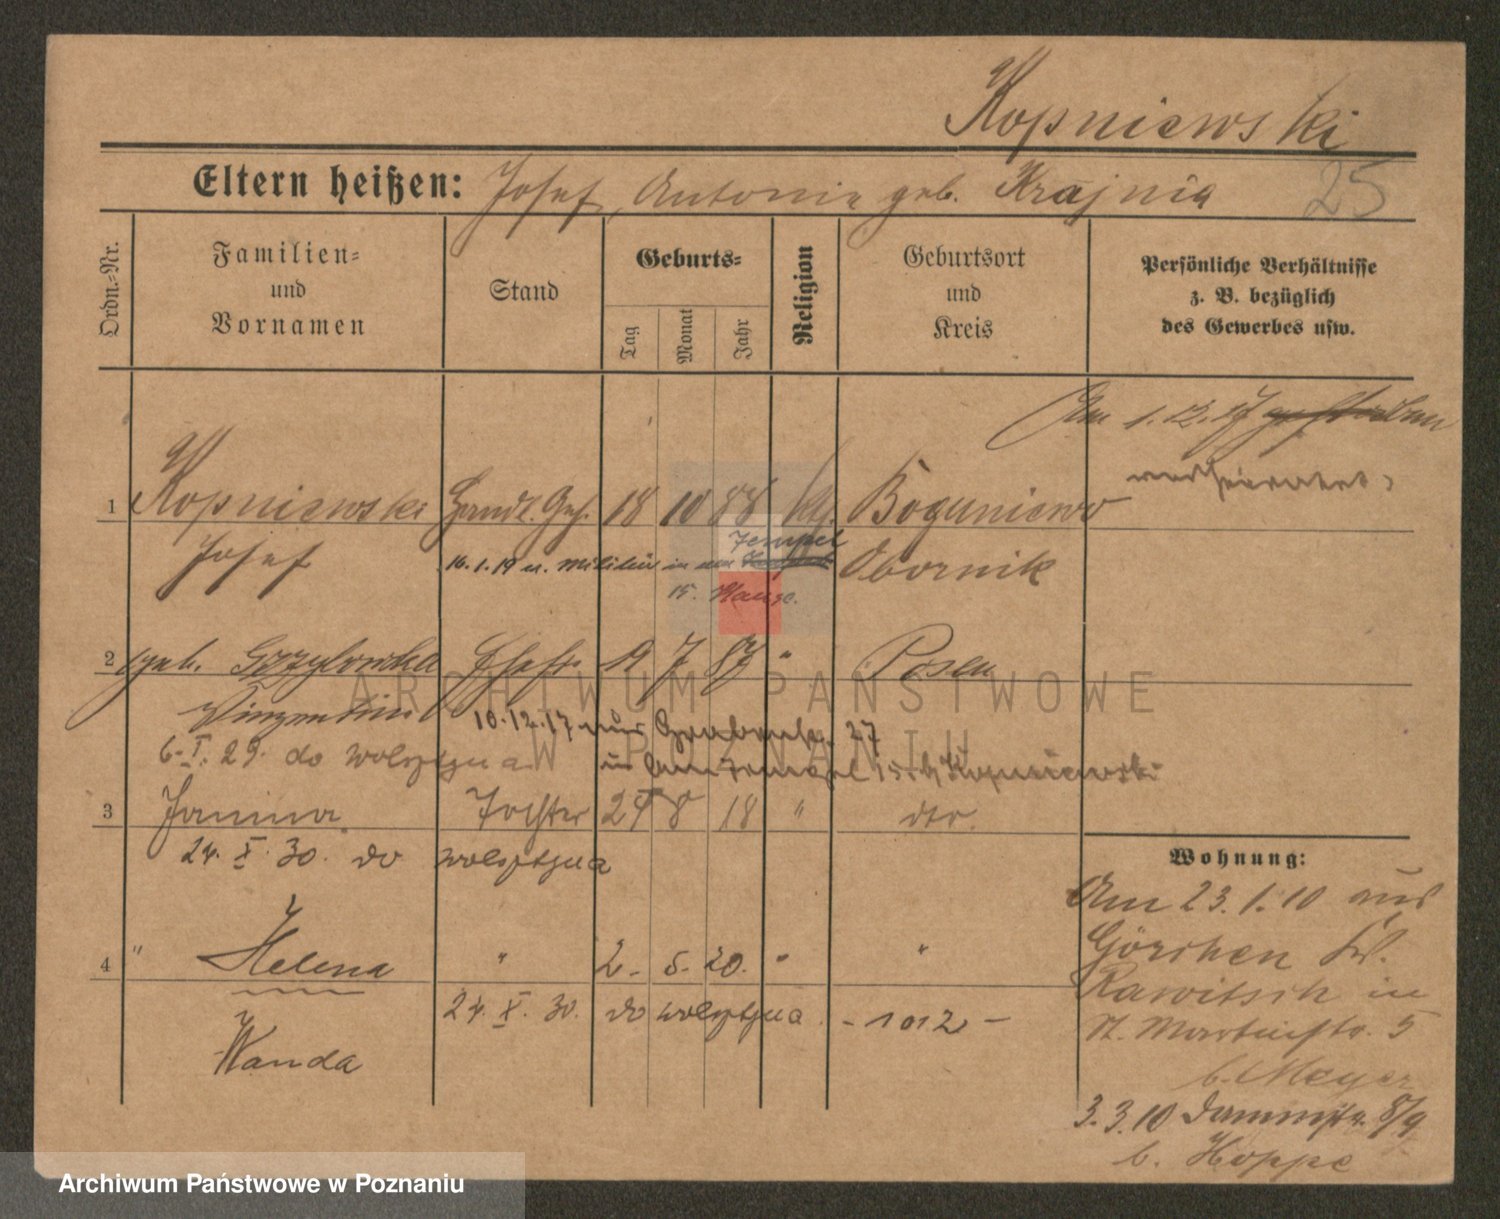 Kopniewski
Eltern heißen: Josef, Antonie geb. Krajnia
25
Ordn.-Nr.
Familien-
und
Vornamen
Stand
Geburts-
Tag
Monat
Jahr
Religion
Geburtsort
und
Kreis
Persönliche Verhältnisse
z. B. bezüglich
des Gewerbes usw.
Am 1.12.17
verheiratet
1 Kopniewski Handl. Geh. 18 10 88 kg. Boguniewo
Josef Obornik
16.1.19 v. Militär in Tempel
15.
2 geb. Ehefr. 19 7 87 " Posen
10.12.17 aus 27
6.I.29. do wolsztyna
Kopniewski
3 Janina Tochter 24 8 18 " dto.
24. X. 30. do wolsztyna
4 " Helena " 2. 5. 20. " "
24. X. 30. do wolsztyna - 1012 -
Wanda
Wohnung:
Am 23.1.10 aus
Görchen Kr.
Rawitsch in
St. Martinstr. 5
b. Meyer
3.3.10 Dammstr. 8/9
b. Hoppe
ARCHIWUM PAŃSTWOWE
W POZNANIU
Archiwum Państwowe w Poznaniu